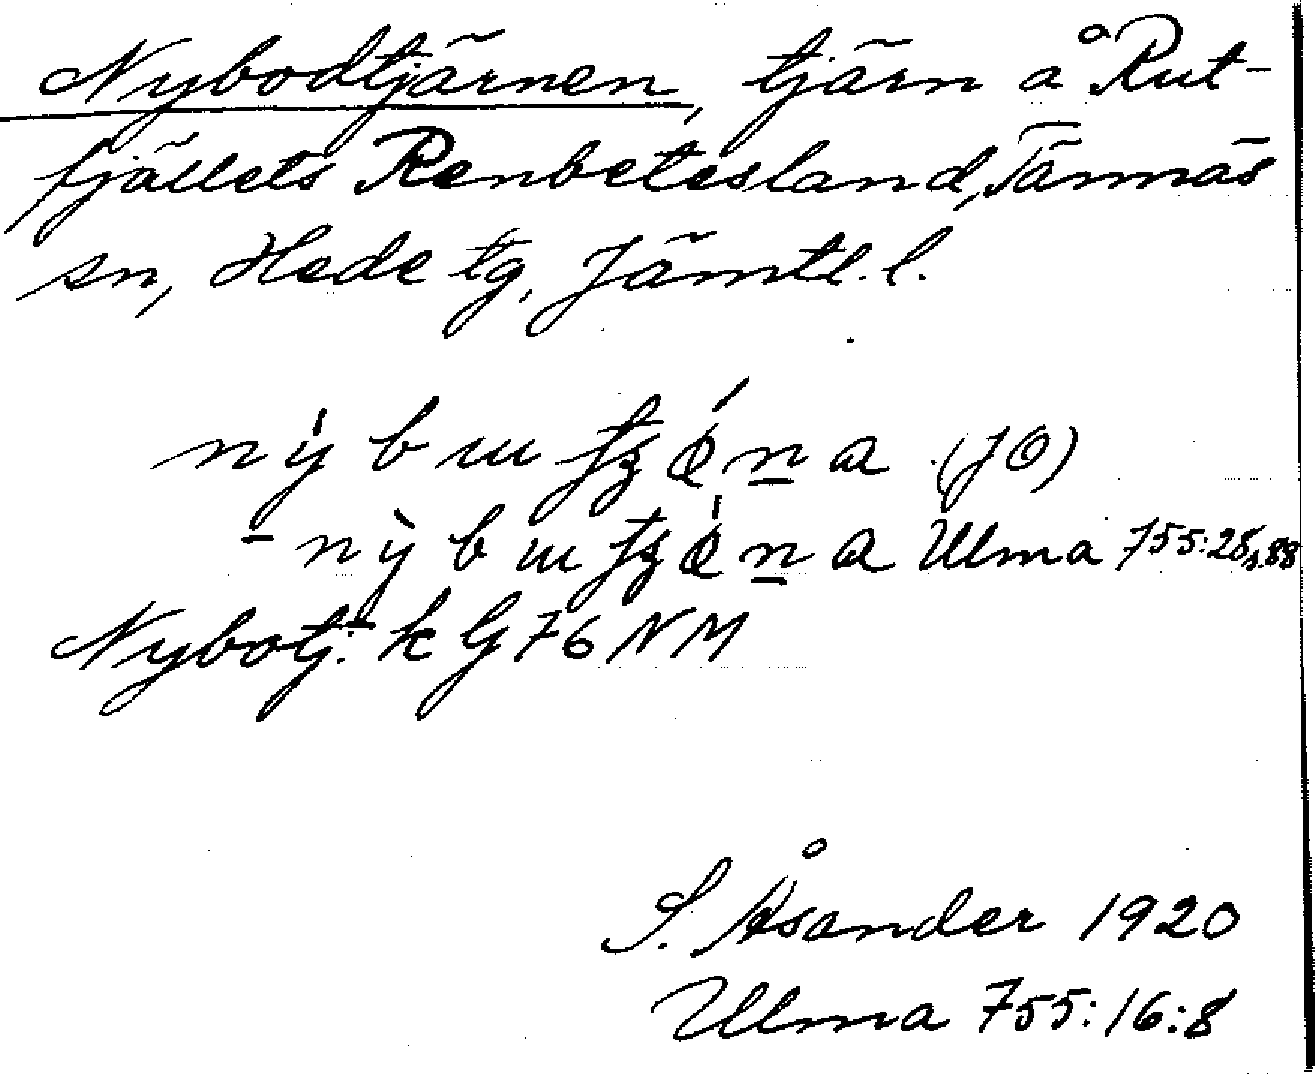 Nybodtjärnen, tjärn å Rut-
fjällets Renbetesland, Tännäs
sn, Hede tg, Jämtl. l.
(JÖ)
Ulma 755:28, s. 88
Nybotj:n k G 76 NM
S. Åsander 1920
Ulma 755:16:8